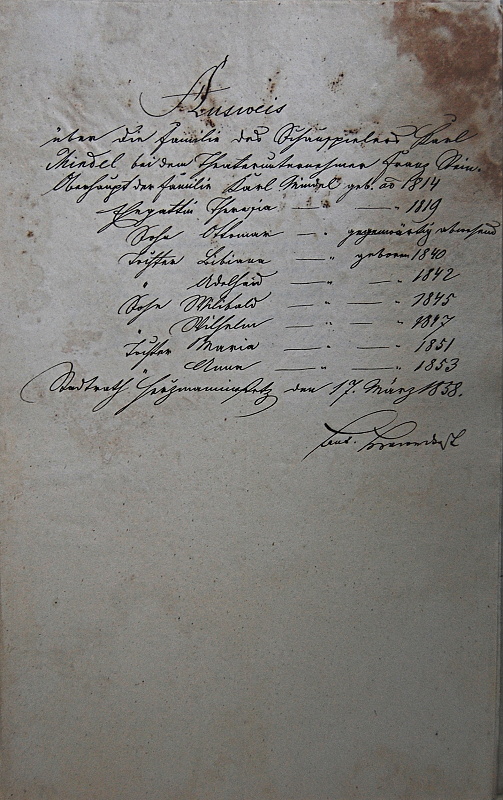 Ausweis
über die Familie des Schauspielers Karl
Mindel bei dem Theaterunternehmer Franz Stein.
Oberhaupt der Familie Karl Mindel geb. ao 1814
Ehegattin Theresia — " — " 1819
Sohn Ottomar — " gegenwärtig abwesend
Tochter Bibiana — " geboren 1840
" Adelheid — " — " 1842
Sohn Willibald — " — " 1845
" Wilhelm — " — " 1847
Tochter Maria — " — " 1851
" Anna — " — " 1853
Stadtrath Hermannmestetz den 17. März 1858.